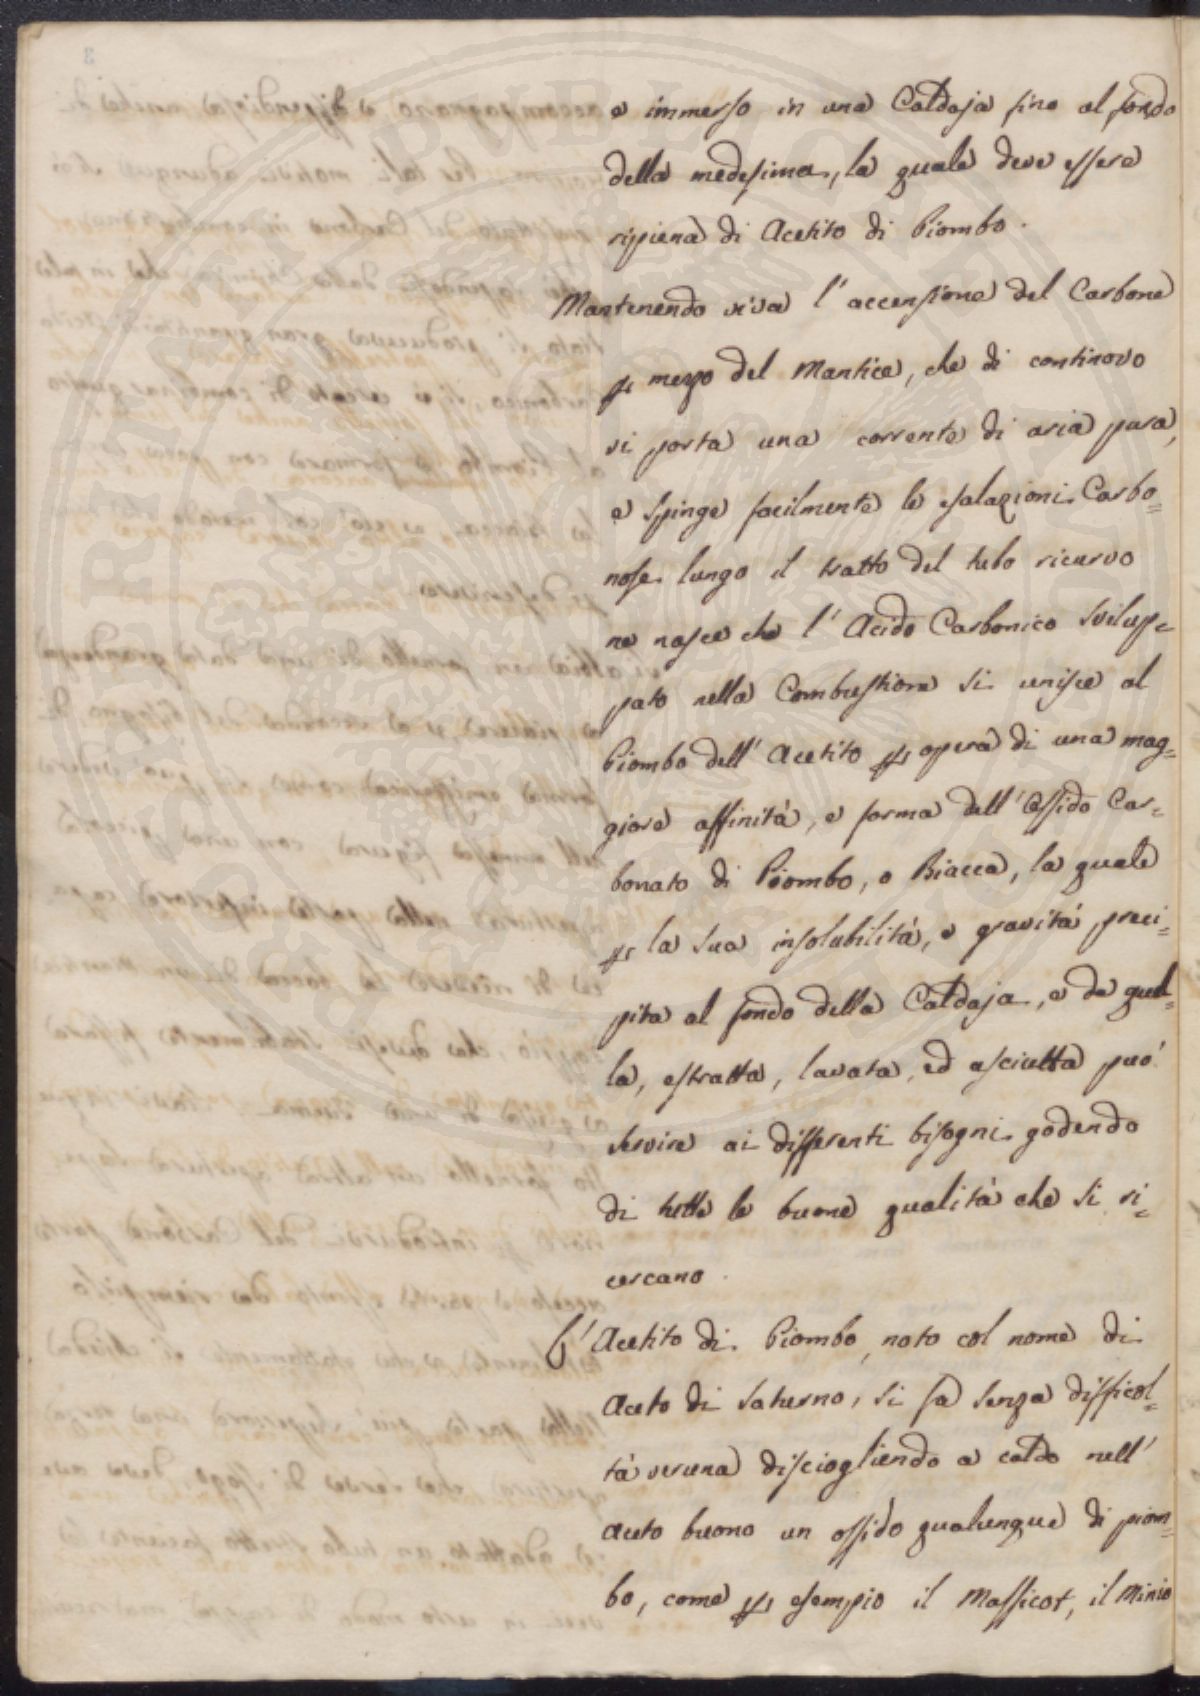 e immerso in una Caldaja fino al fondo
della medesima, la quale deve essere
ripiena di Acetito di Piombo.
Mantenendo viva l'accensione del Carbone
per mezzo del Mantice, che di continovo
vi porta una corrente di aria pura,
e spinge facilmente le esalazioni Carbo=
nose lungo il tratto del tubo ricurvo
ne nasce che l'Acido Carbonico svilup=
pato nella Combustione si unisce al
Piombo dell'Acetito per opera di una mag=
giore affinità, e forma dell'Ossido Car=
bonato di Piombo, o Biacca, la quale
per la sua insolubilità, e gravità preci=
pita al fondo della Caldaja, e da quel=
la, estratta, lavata, ed asciutta può
servire ai differenti bisogni godendo
di tutte le buone qualità che si ri=
cercano.
L'Acetito di Piombo, noto col nome di
Aceto di Saturno, si fa senza difficol=
tà veruna disciogliendo a caldo nell'
aceto buono un ossido qualunque di piom=
bo, come per esempio il Massicot, il Minio
PUBLICAE
PROSPERITATI
3